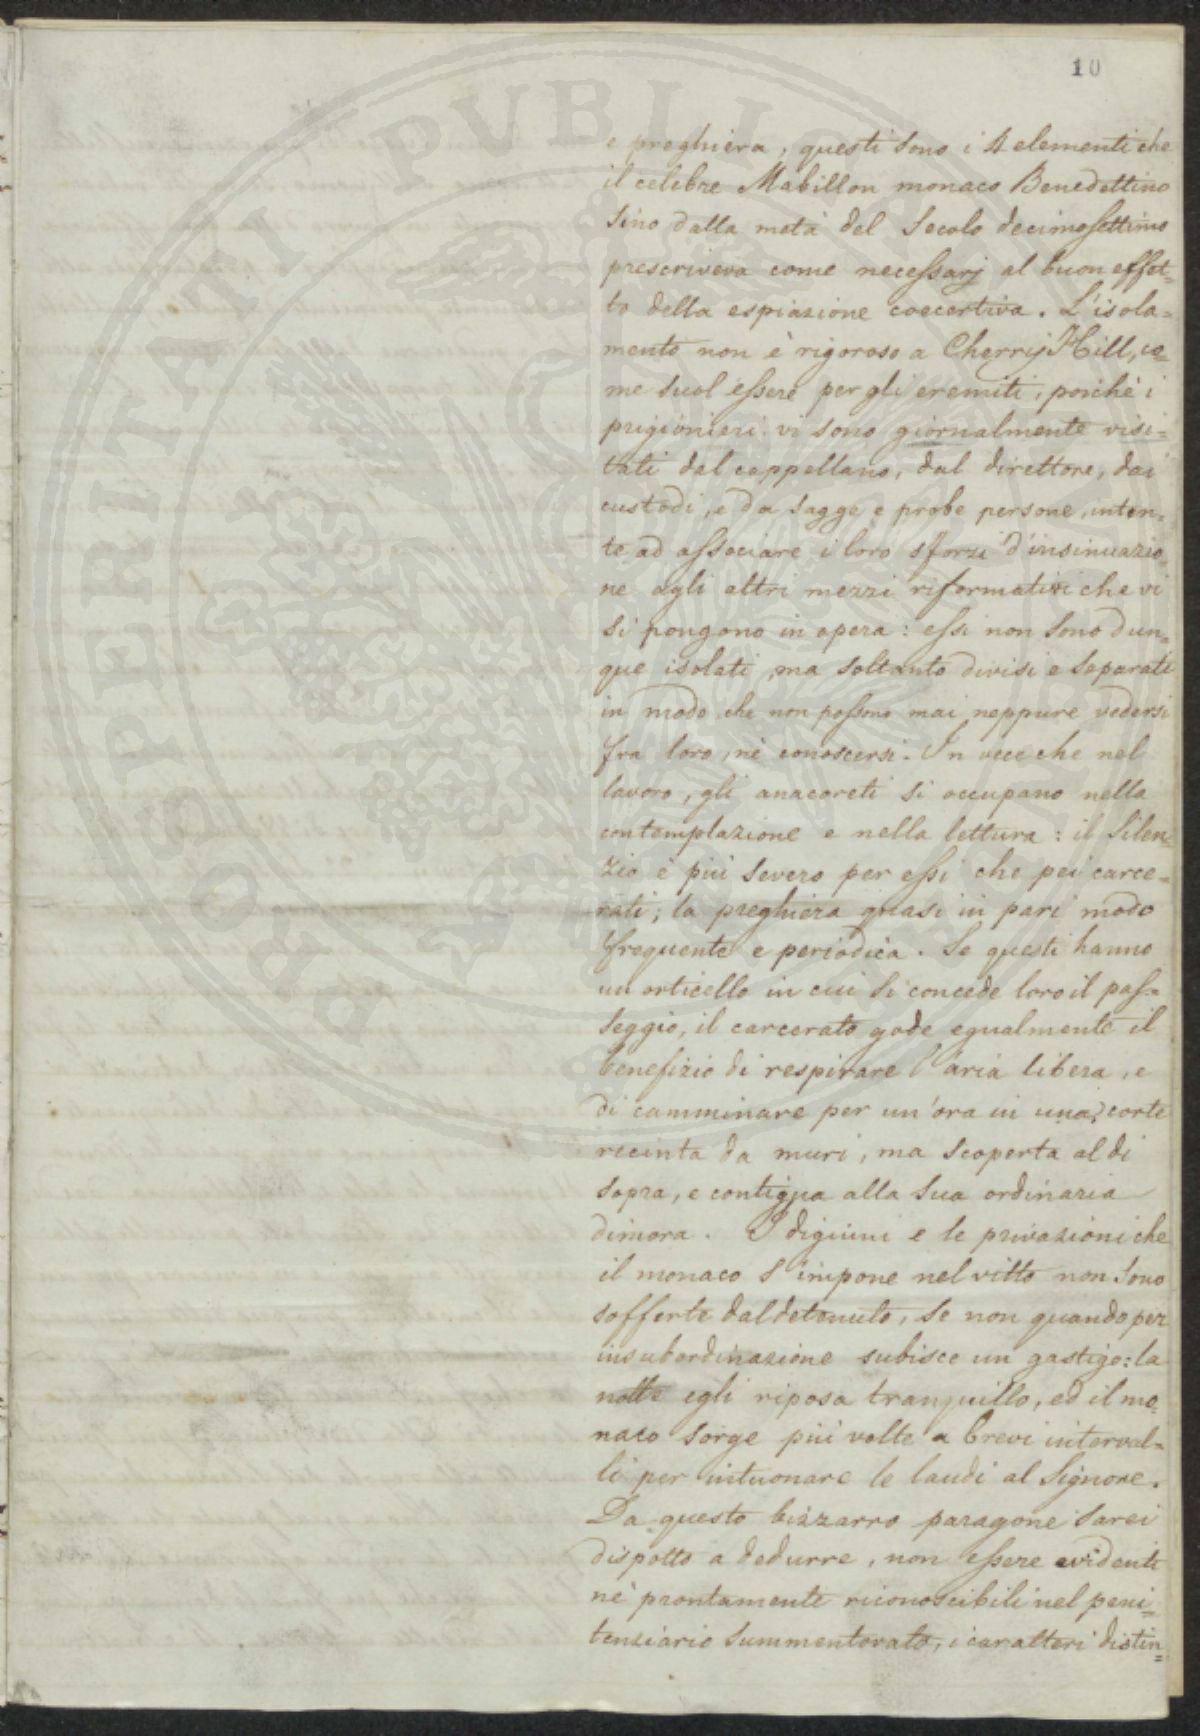 10
PROSPERITATI PUBLICAE
e preghiera, questi sono i 4 elementi che
il celebre Mabillon monaco Benedettino
sino dalla metà del Secolo decimosettimo
prescriveva come necessarj al buon effet=
to della espiazione coecertiva. L'isola=
mento non è rigoroso a Cherry Hill, co=
me suol essere per gli eremiti, poichè i
prigionieri vi sono giornalmente visi=
tati dal cappellano, dal direttore, dai
custodi, e da sagge e probe persone, inten=
te ad associare i loro sforzi d'insinuazio=
ne agli altri mezzi riformativi che vi
si pongono in opera: essi non sono dun=
que isolati, ma soltanto divisi e separati
in modo che non possono mai neppure vedersi
fra loro, nè conoscersi. In vece che nel
lavoro, gli anacoreti si occupano nella
contemplazione e nella lettura: il Silen=
zio è più severo per essi che pei carce=
rati; la preghiera quasi in pari modo
frequente e periodica. Se questi hanno
un orticello in cui si concede loro il pas=
seggio, il carcerato gode egualmente il
benefizio di respirare l'aria libera, e
di camminare per un'ora in una corte
recinta da muri, ma scoperta al di
sopra, e contigua alla sua ordinaria
dimora. I digiuni e le privazioni che
il monaco s'impone nel vitto non sono
sofferte dal detenuto, se non quando per
insubordinazione subisce un gastigo: la
notte egli riposa tranquillo, ed il mo=
naco sorge più volte a brevi interval=
li per intuonare le laudi al Signore.
Da questo bizzarro paragone sarei
dispotto a dedurre, non essere evidenti
nè prontamente riconoscibili nel peni=
tenziario summentovato, i caratteri distin=